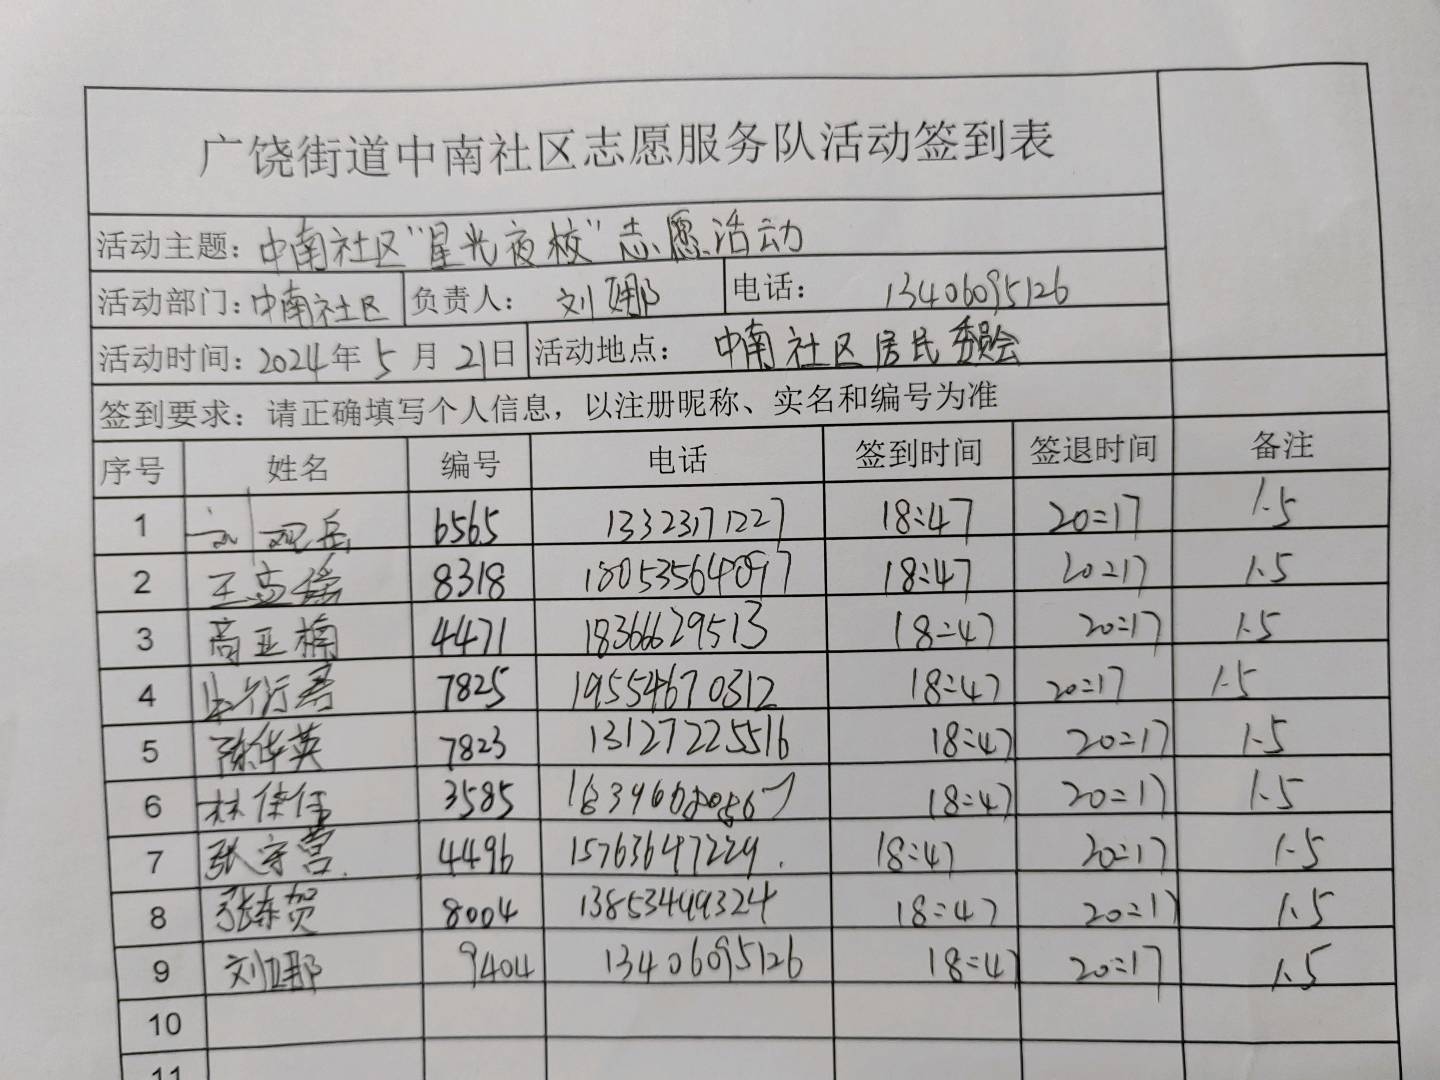 广饶街道中南社区志愿服务队活动签到表
活动主题：中南社区“星光夜校”志愿活动
活动部门：中南社区 负责人：刘娜 电话：13406095126
活动时间：2024年5月21日 活动地点：中南社区居民委员会
签到要求：请正确填写个人信息，以注册昵称、实名和编号为准
序号 姓名 编号 电话 签到时间 签退时间 备注
1 6565 13323171227 18:47 20:17 1.5
2 8318 18053564097 18:47 20:17 1.5
3 商亚楠 4471 18366629513 18:47 20:17 1.5
4 7825 19554670312 18:47 20:17 1.5
5 陈华英 7823 13127225516 18:47 20:17 1.5
6 3585 18:47 20:17 1.5
7 张守营 4496 15763647229. 18:47 20:17 1.5
8 张东贺 8004 13853449324 18:47 20:17 1.5
9 刘娜 9404 13406095126 18:47 20:17 1.5
10
11